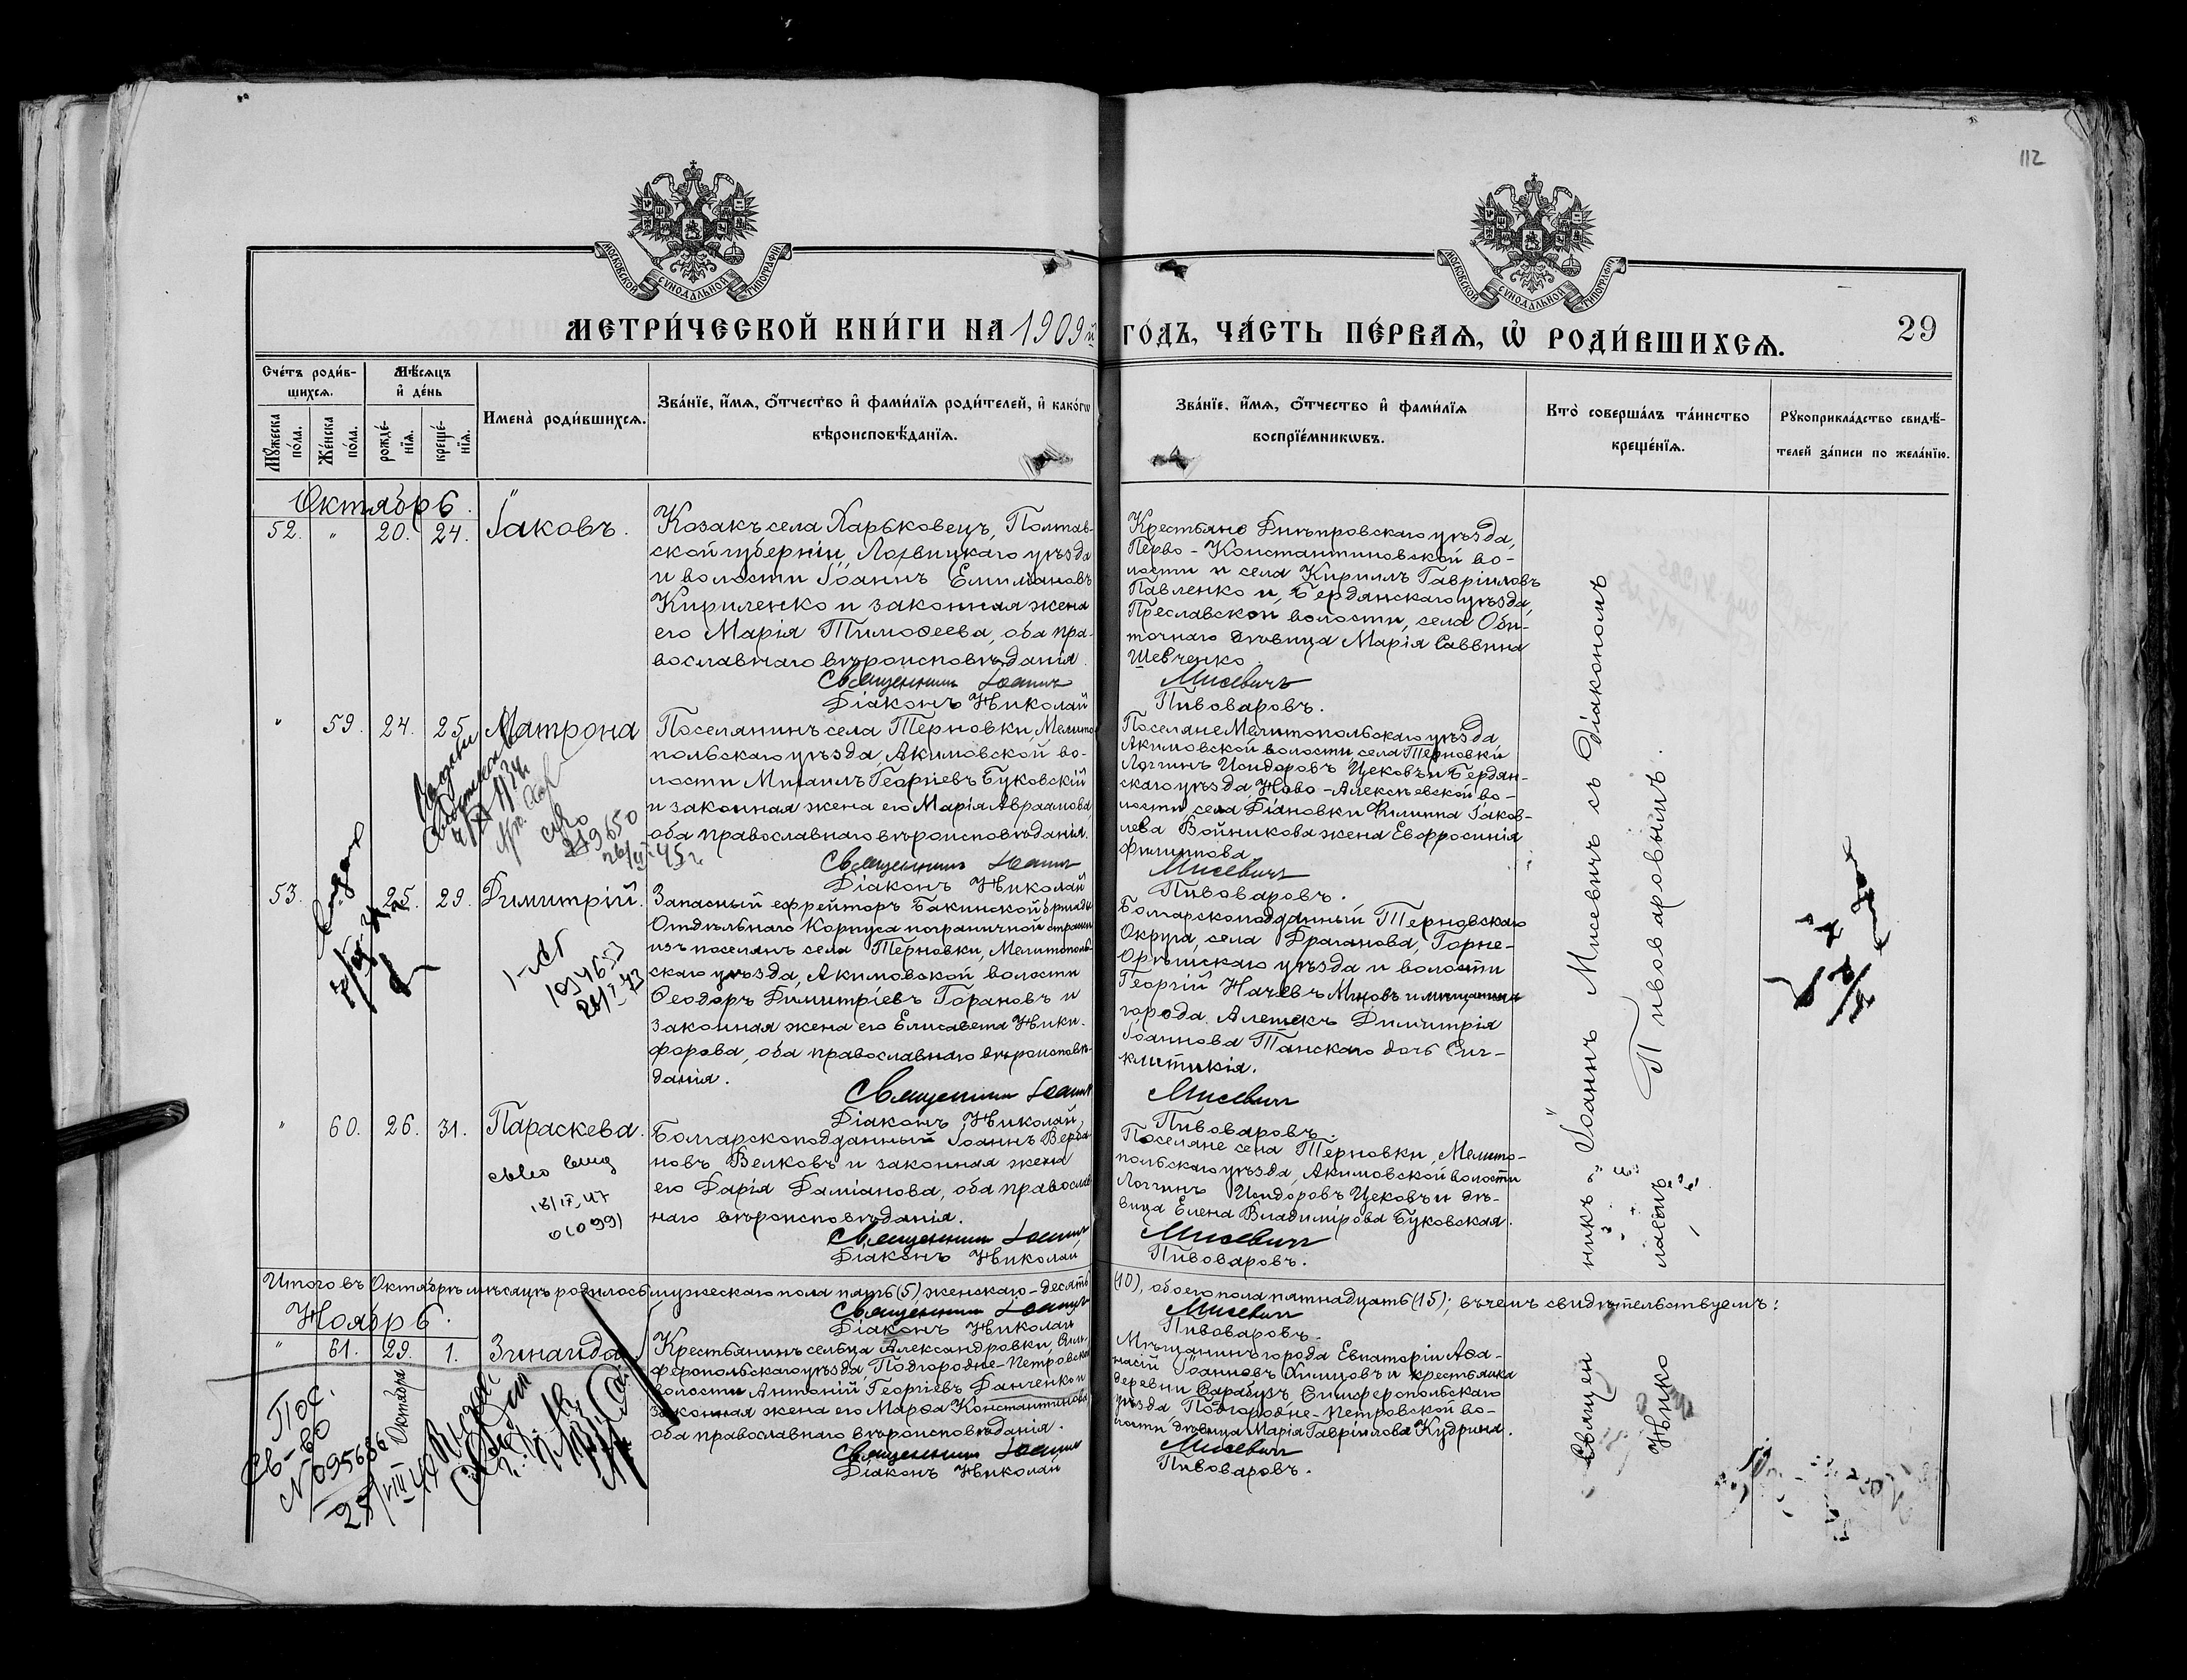 112
МОСКОВСКОЙ СѴНОДАЛЬНОЙ ТИПОГРАФІИ
МОСКОВСКОЙ СѴНОДАЛЬНОЙ ТИПОГРАФІИ
МЕТРИ́ЧЕСКОЙ КНИ́ГИ НА 1909й ГО́ДЪ, ЧА́СТЬ ПЕ́РВАѦ, Ѡ҆ РОДИ́ВШИХСѦ.
29
Сче́тъ роди́вшихсѧ.
Мꙋ́жеска по́ла.
Же́нска по́ла.
Мѣ́сѧцъ и҆ де́нь
рожде́нїѧ.
креще́нїѧ.
Имена̀ роди́вшихсѧ.
Зва́нїе, и҆́мѧ, ѻ҆́тчество и҆ фами́лїѧ роди́телей, и҆ како́гѡ
вѣроисповѣ́данїѧ.
Зва́нїе, и҆́мѧ, ѻ҆́тчество и҆ фами́лїѧ
воспрїе́мникѡвъ.
Кто̀ соверша́лъ та́инство
креще́нїѧ.
Рꙋкоприкла́дство свидѣ́-
телей за́писи по жела́нїю.
Октябрь.
52. " 20. 24. Іаковъ.
Козакъ села Харьковецъ, Полтав-
ской губерніи, Лохвицкаго уѣзда
и волости Іоаннъ Емиліановъ
Кириленко и законная жена
его Марія Тимоѳеева, оба пра-
вославнаго вѣроисповѣданія.
Священникъ Іоаннъ
Діаконъ Николай
Крестьяне Днѣпровскаго уѣзда,
Перво-Константиновской во-
лости и села Кириллъ Гавріиловъ
Павленко и, Бердянскаго уѣзда,
Преславской волости, села Оби-
точнаго дѣвица Марія Саввина
Шевченко
Мисевичъ
Пивоваровъ.
" 59. 24. 25. Матрона
Поселянинъ села Терновки, Мелито-
польскаго уѣзда, Акимовской во-
лости Михаилъ Георгіевъ Буковскій
и законная жена его Марія Авраамова,
оба православнаго вѣроисповѣданія.
Священникъ Іоаннъ
Діаконъ Николай
Поселяне Мелитопольскаго уѣзда
Акимовской волости села Терновки
Логгинъ Исидоровъ Цековъ и Бердян-
скаго уѣзда, Ново-Алексѣевской во-
лости, села Діановки Филиппа Іаков-
лева Войникова жена Евфросинія
Филиппова
Мисевичъ
Пивоваровъ.
53. 25. 29. Димитрій.
Запасный ефрейторъ Бакинской бригады
Отдѣльнаго Корпуса пограничной стражи
изъ поселянъ села Терновки, Мелитополь-
скаго уѣзда, Акимовской волости
Ѳеодоръ Димитріевъ Горановъ и
законная жена его Елисавета Ники-
форова, оба православнаго вѣроисповѣ-
данія.
Священникъ Іоаннъ
Діаконъ Николай
Болгарскоподданный Терновскаго
Округа, села Драганова, Горне-
Орѣшскаго уѣзда и волости
Георгій Начевъ и мѣщанина
города Алешекъ Димитрія
Іоаннова Танскаго дочь Син-
клитикія.
Мисевичъ
Пивоваровъ.
" 60. 26. 31. Параскева.
Болгарскоподданный Іоаннъ Верба-
новъ Велковъ и законная жена
его Дарія Даміанова, оба православ-
наго вѣроисповѣданія.
Священникъ Іоаннъ
Діаконъ Николай
Поселяне села Терновки, Мелито-
польскаго уѣзда, Акимовской волости
Логгинъ Исидоровъ Цековъ и дѣ-
вица Елена Владимірова Буковская.
Мисевичъ
Пивоваровъ.
Итого въ Октябрѣ мѣсяцѣ родилось мужескаго пола пять (5) женскаго-десять (10), обоего пола пятнадцать (15); въ чемъ свидѣтельствуемъ:
Священникъ Іоаннъ Мисевичъ
Діаконъ Николай Пивоваровъ.
Ноябрь.
" 61. 29. Октября 1. Зинаида
Крестьянинъ сельца Александровки, Сим-
феропольскаго уѣзда, Подгородне-Петровской
волости Антоній Георгіевъ Данченко и
законная жена его Марѳа Константинова
оба православнаго вѣроисповѣданія.
Священникъ Іоаннъ
Діаконъ Николай
Мѣщанинъ города Евпаторіи Аѳа-
насій Іоанновъ Климовъ и крестьянка
деревни Сарабузъ, Симферопольскаго
уѣзда, Подгородне-Петровской во-
лости, дѣвица Марія Гавріилова Кудрина.
Мисевичъ
Пивоваровъ.
Священникъ Іоаннъ Мисевичъ съ Діакономъ
Николаемъ Пивоваровымъ.
219650
1034653
28/I 43
18/IX 47
Св-во
N 095686